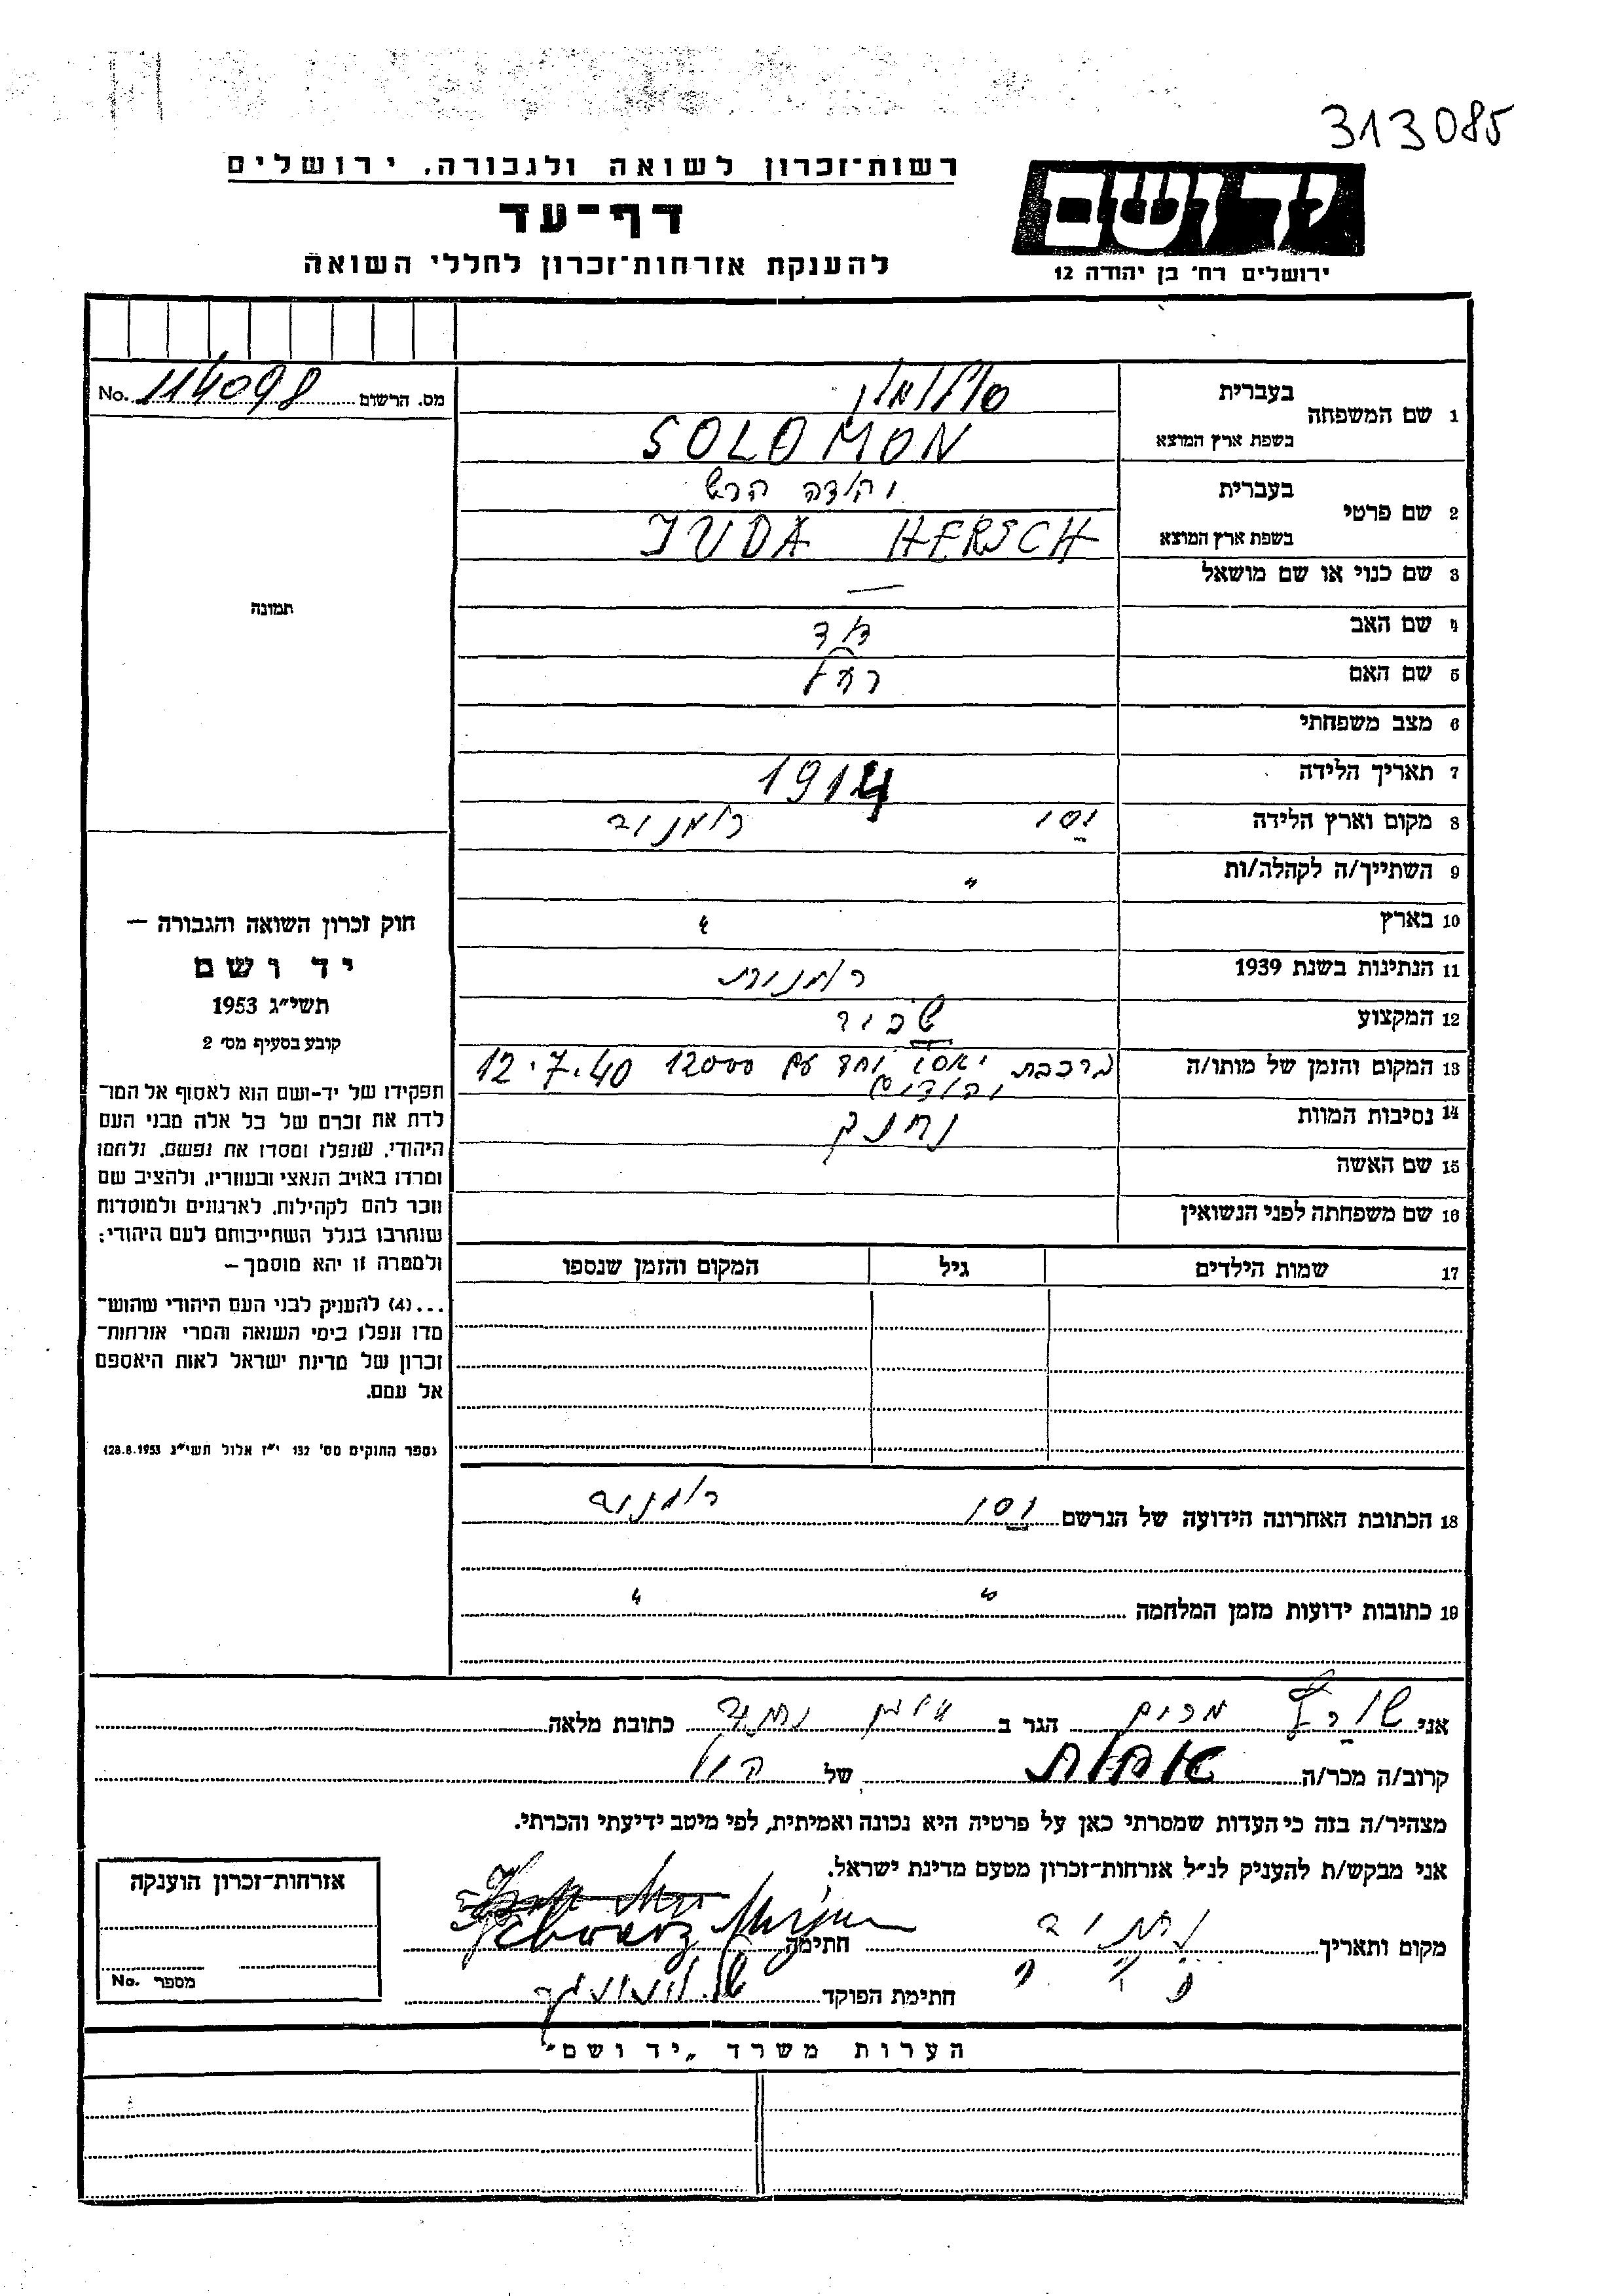 313085
יד ושם
ירושלים רח' בן יהודה 12
רשות־זכרון לשואה ולגבורה, ירושלים
דף־עד
להענקת אזרחות־זכרון לחללי השואה
מס. הרשום 114098 No.
תמונה
1 שם המשפחה בעברית סולומון
בשפת ארץ המוצא SOLOMON
2 שם פרטי בעברית יהודה הרש
בשפת ארץ המוצא JUDA HERSCH
3 שם כנוי או שם מושאל —
4 שם האב דוד
5 שם האם רחל
6 מצב משפחתי
7 תאריך הלידה 1914
8 מקום וארץ הלידה יסי רומניה
9 השתייך/ה לקהלה/ות "
10 בארץ "
11 הנתינות בשנת 1939 רומנית
12 המקצוע
13 המקום והזמן של מותו/ה ברכבת יאסי יחד עם 12000 יהודים 12.7.40
14 נסיבות המוות נחנק
15 שם האשה
16 שם משפחתה לפני הנשואין
17 שמות הילדים גיל המקום והזמן שנספו
18 הכתובת האחרונה הידועה של הנרשם יסי רומניה
19 כתובות ידועות מזמן המלחמה " "
חוק זכרון השואה והגבורה —
יד ושם
תשי"ג 1953
קובע בסעיף מס' 2
תפקידו של יד-ושם הוא לאסוף אל המו־
לדת את זכרם של כל אלה מבני העם
היהודי, שנפלו ומסרו את נפשם, נלחמו
ומרדו באויב הנאצי ובעוזריו, ולהציב שם
וזכר להם לקהילות, לארגונים ולמוסדות
שנחרבו בגלל השתייכותם לעם היהודי;
ולמטרה זו יהא מוסמך —
...(4) להעניק לבני העם היהודי שהוש־
מדו ונפלו בימי השואה והמרי אזרחות־
זכרון של מדינת ישראל לאות היאספם
אל עמם.
(ספר החוקים מס' 132 י"ז אלול תשי"ג 28.8.1953)
אני שורץ מרים הגר ב כתובת מלאה
קרוב/ה מכר/ה אחות של הנ"ל
מצהיר/ה בזה כי העדות שמסרתי כאן על פרטיה היא נכונה ואמיתית, לפי מיטב ידיעתי והכרתי.
אני מבקש/ת להעניק לנ"ל אזרחות־זכרון מטעם מדינת ישראל.
מקום ותאריך חתימה Schwarz
חתימת הפוקד
אזרחות־זכרון הוענקה
מספר No.
הערות משרד „יד ושם"